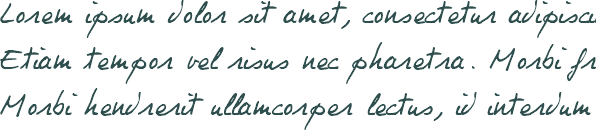 Lorem ipsum dolor sit amet, consectetur adipiscu
Etiam tempor vel risus nec pharetra. Morbi fr
Morbi hendrerit ullamcorper lectus, id interdum